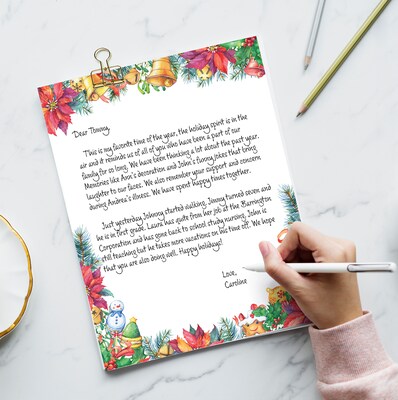 Dear Tommy,
This is my favorite time of the year, the holiday spirit is in the
air and it reminds us of all of you who have been a part of our
family for so long. We have been thinking a lot about the past year.
Memories like Ann's decoration and John's funny jokes that bring
laughter to our faces. We also remember your support and concern
during Andrea's illness. We have spent happy times together.
Just yesterday Johnny started walking, Jimmy turned seven and
he is in first grade. Laura has quite from her job at the Barrington
Corporation and has gone back to school study nursing. John is
still teaching but he takes more vacations on his time off. We hope
that you are also doing well. Happy holidays!
Love,
Caroline